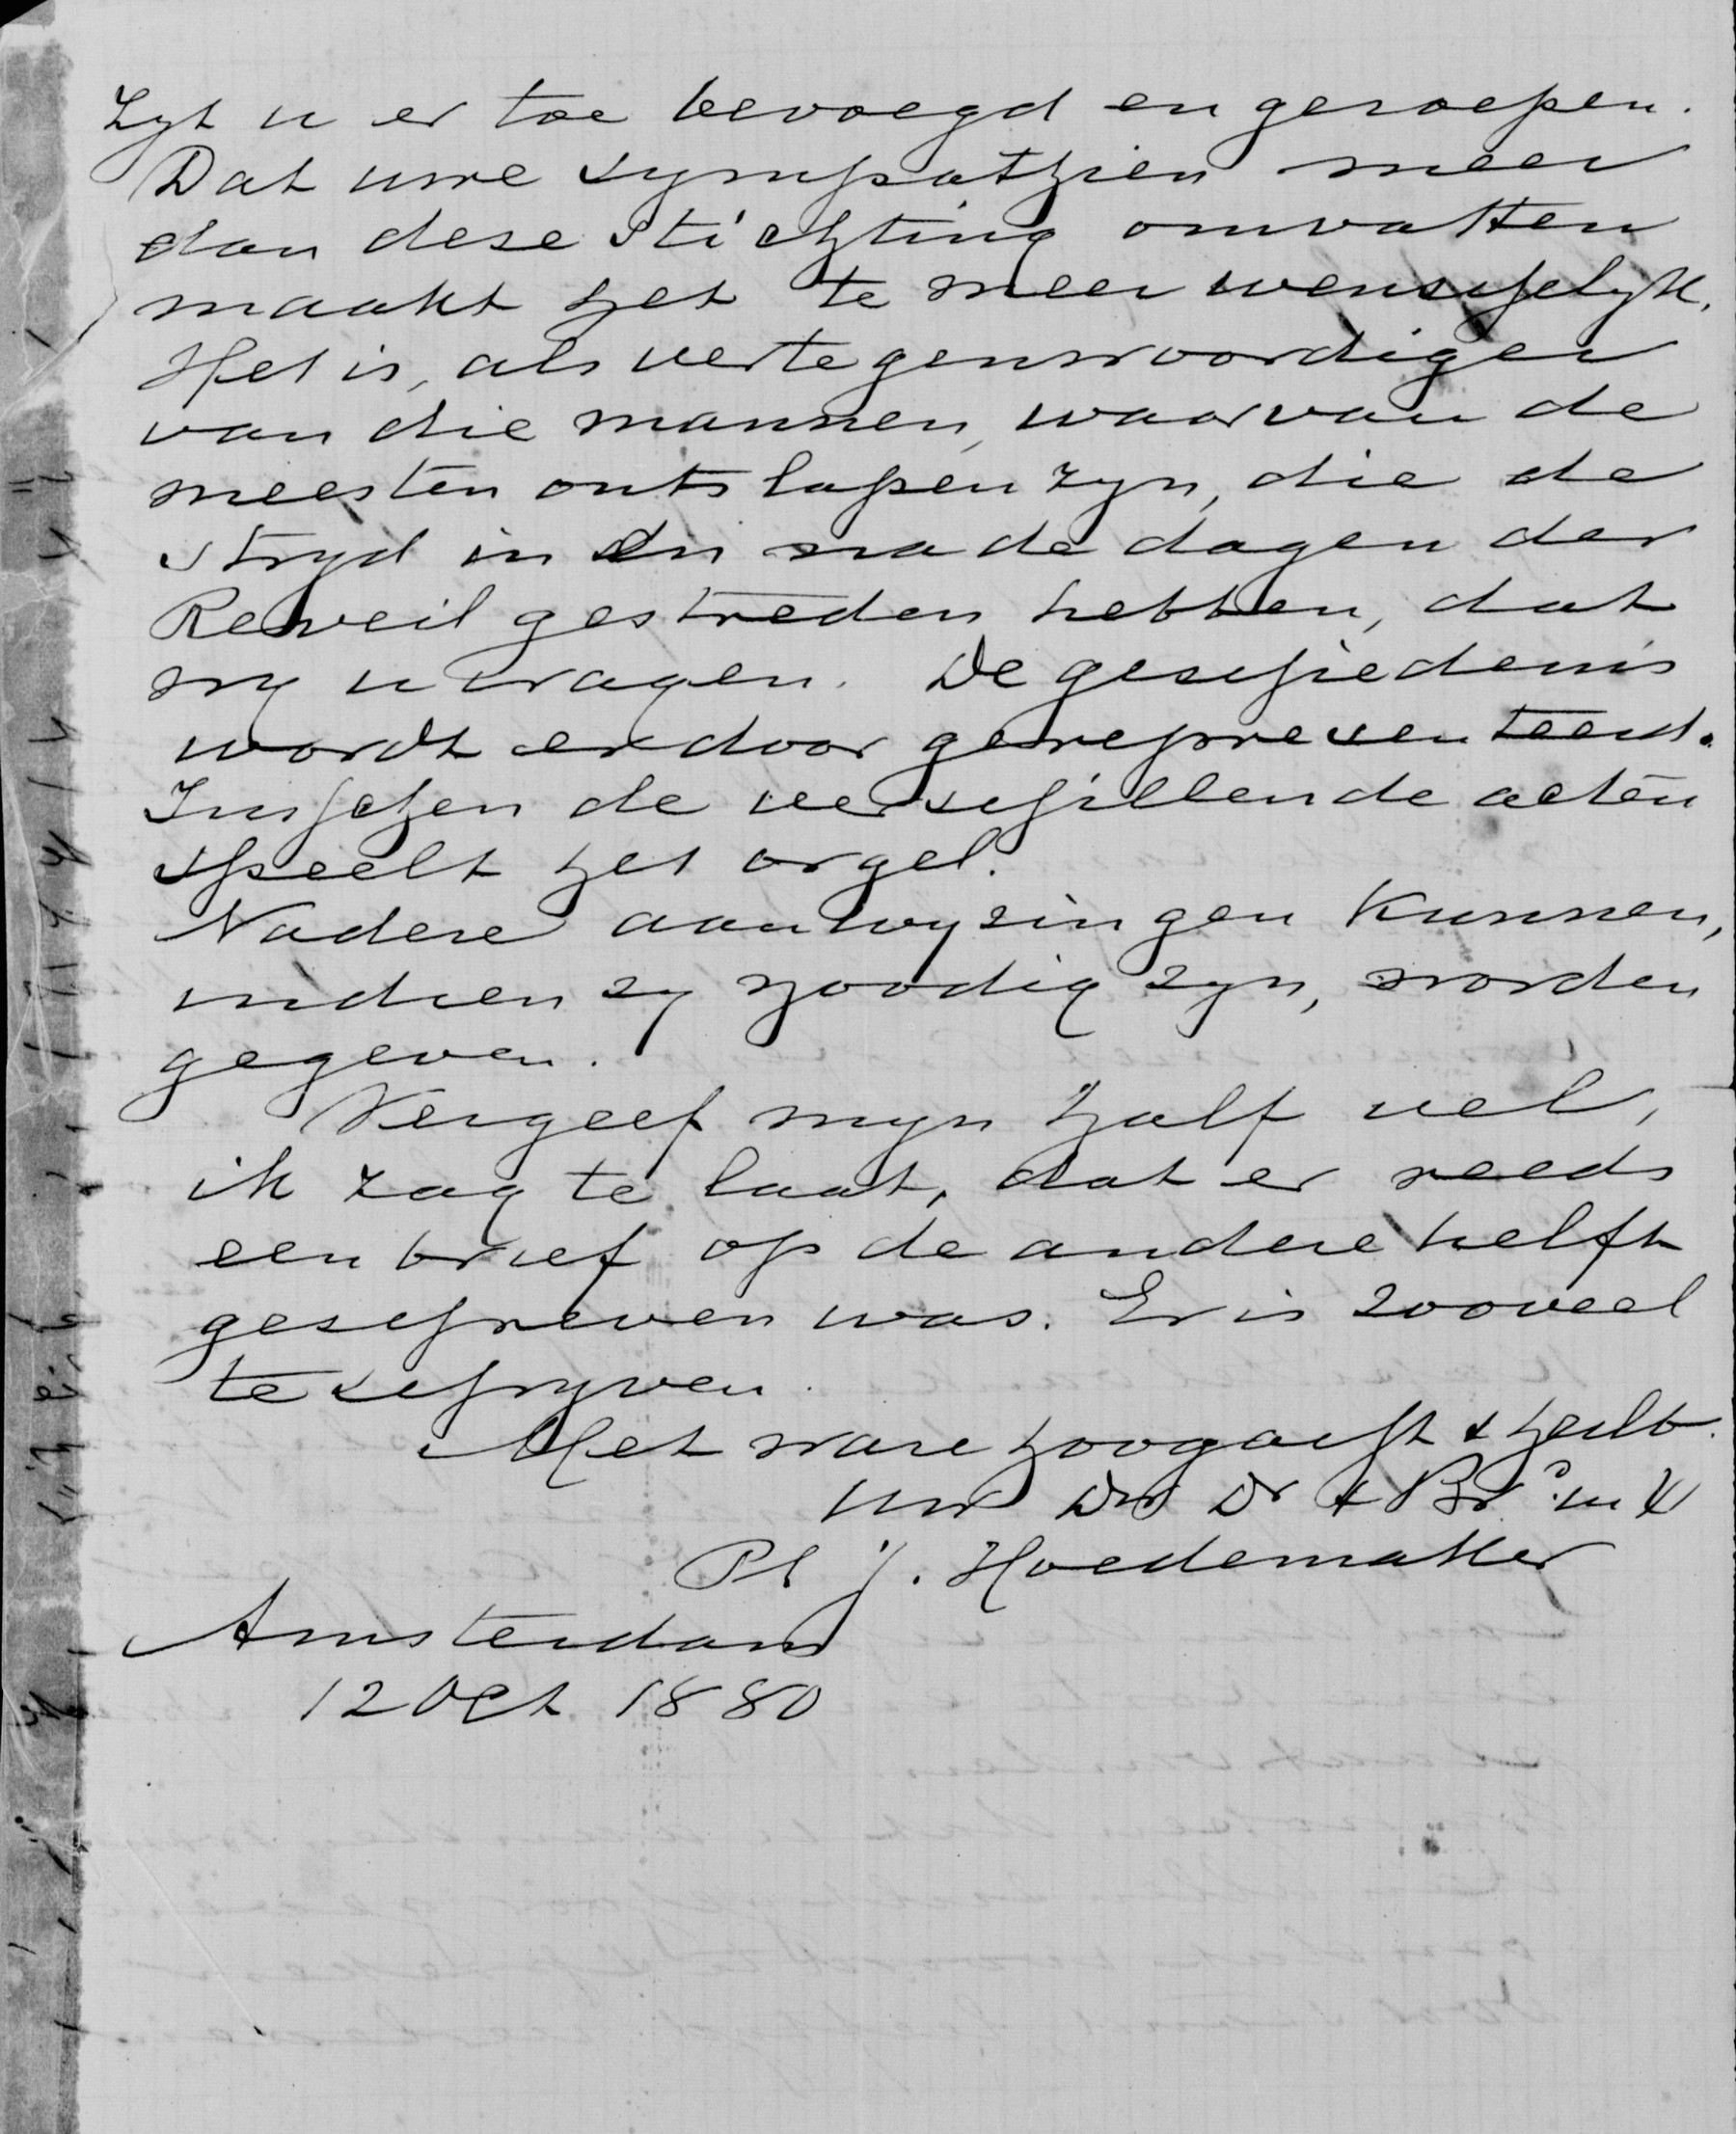 Zyt u er toe bevoegd en geroepen.
Dat uwe sympathien meer
dan deze Stichting omvatten
maakt het te meer wenschelyk.
Het is, als vertegenwoordiger
van die mannen, waarvan de
meesten ontslapen zyn, die de
stryd in en na de dagen der
Reveil gestreden hebben, dat
wy u vragen. De geschiedenis
wordt er door gerepresenteerd.
Tusschen de verschillende acten
speelt het orgel.
Nadere aanwyzingen kunnen,
indien zy noodig zyn, worden
gegeven.
Vergeef myn half vel,
ik zag te laat, dat er reeds
een brief op de andere helft
geschreven was. Er is zooveel
te schryven.
Met ware hoogacht & heilb.
uw Dw Dr & Br in X
Ph J. Hoedemaker
Amsterdam
12 Oct 1880